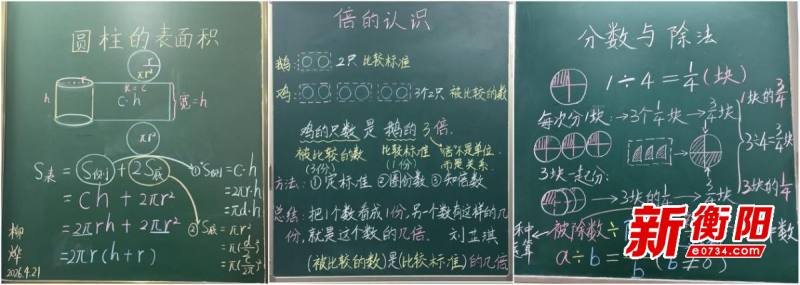 圆柱的表面积
πr²
r
h
c·h
宽=h
πr²
S表 = S侧 + 2S底
= ch + 2πr²
= 2πrh + 2πr²
= 2πr(h+r)
①S侧=c·h
=2πr·h
=πd·h
②S底=πr²
柳烨
2026.4.21
倍的认识
鹅: 2只 比较标准
鸡: 3个2只 被比较的数
鸡的只数是鹅的3倍.
被比较的数 比较标准 倍不是单位,
(3份) (1份) 而是关系.
方法: ①定标准 ②圈份数 ③知倍数
总结: 把1个数看成1份, 另一个数有这样的几
份, 就是这个数的几倍. 刘芷琪
(被比较的数)是(比较标准)的几倍
分数与除法
1÷4=1/4(块)
每次分1块: →3个1/4块→3/4块
3块一起分:
→3块的1/4→3/4块
1块的3/4
3÷4=3/4
3块的1/4
被除数÷
a÷b=
b (b≠0)
新衡阳
e0734.com